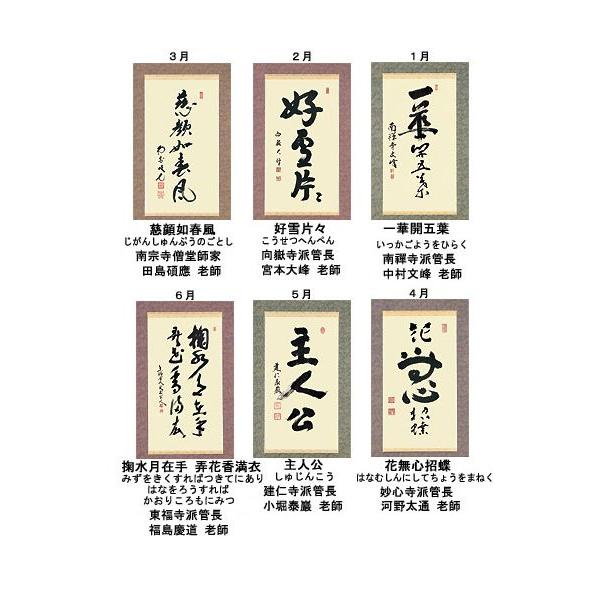 1月
一華開五葉
南禅寺文峰
一華開五葉
いっかごようをひらく
南禪寺派管長
中村文峰 老師
2月
好雪片〻
好雪片々
こうせつへんぺん
向嶽寺派管長
宮本大峰 老師
3月
慈顔如春風
慈顔如春風
じがんしゅんぷうのごとし
南宗寺僧堂師家
田島碩應 老師
4月
花無心招蝶
花無心招蝶
はなむしんにしてちょうをまねく
妙心寺派管長
河野太通 老師
5月
主人公
主人公
しゅじんこう
建仁寺派管長
小堀泰巖 老師
6月
掬水月在手
弄花香満衣
掬水月在手 弄花香満衣
みずをきくすればつきてにあり
はなをろうすれば
かおりころもにみつ
東福寺派管長
福島慶道 老師